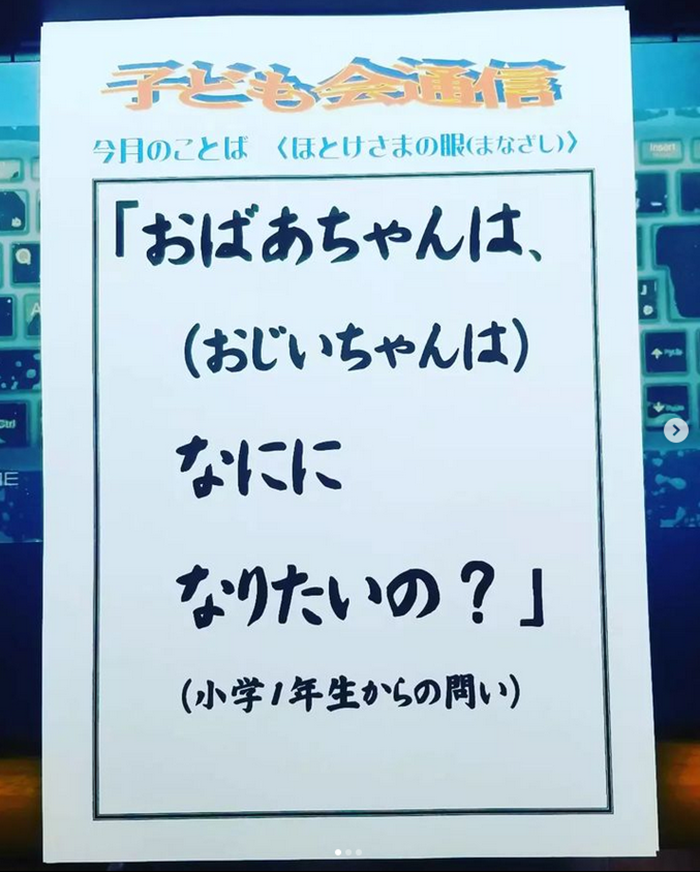 子ども会通信
今月のことば 〈ほとけさまの眼(まなざし)〉
「おばあちゃんは、
(おじいちゃんは)
なにに
なりたいの?」
(小学1年生からの問い)
Insert
PgUp
Ctrl